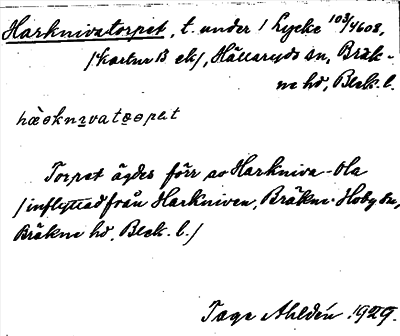 Harknivatorpet, t. under 1 Lycke 103/4608,
/kartur B ek/, Hällaryds sn, Bräk-
ne hd, Blek. l.
Torpet ägdes förr av Harkniva-Ola
/inflyttad från Harkniven, Bräkne-Hoby sn,
Bräkne hd, Blek. l./
Tage Ahldén 1929.